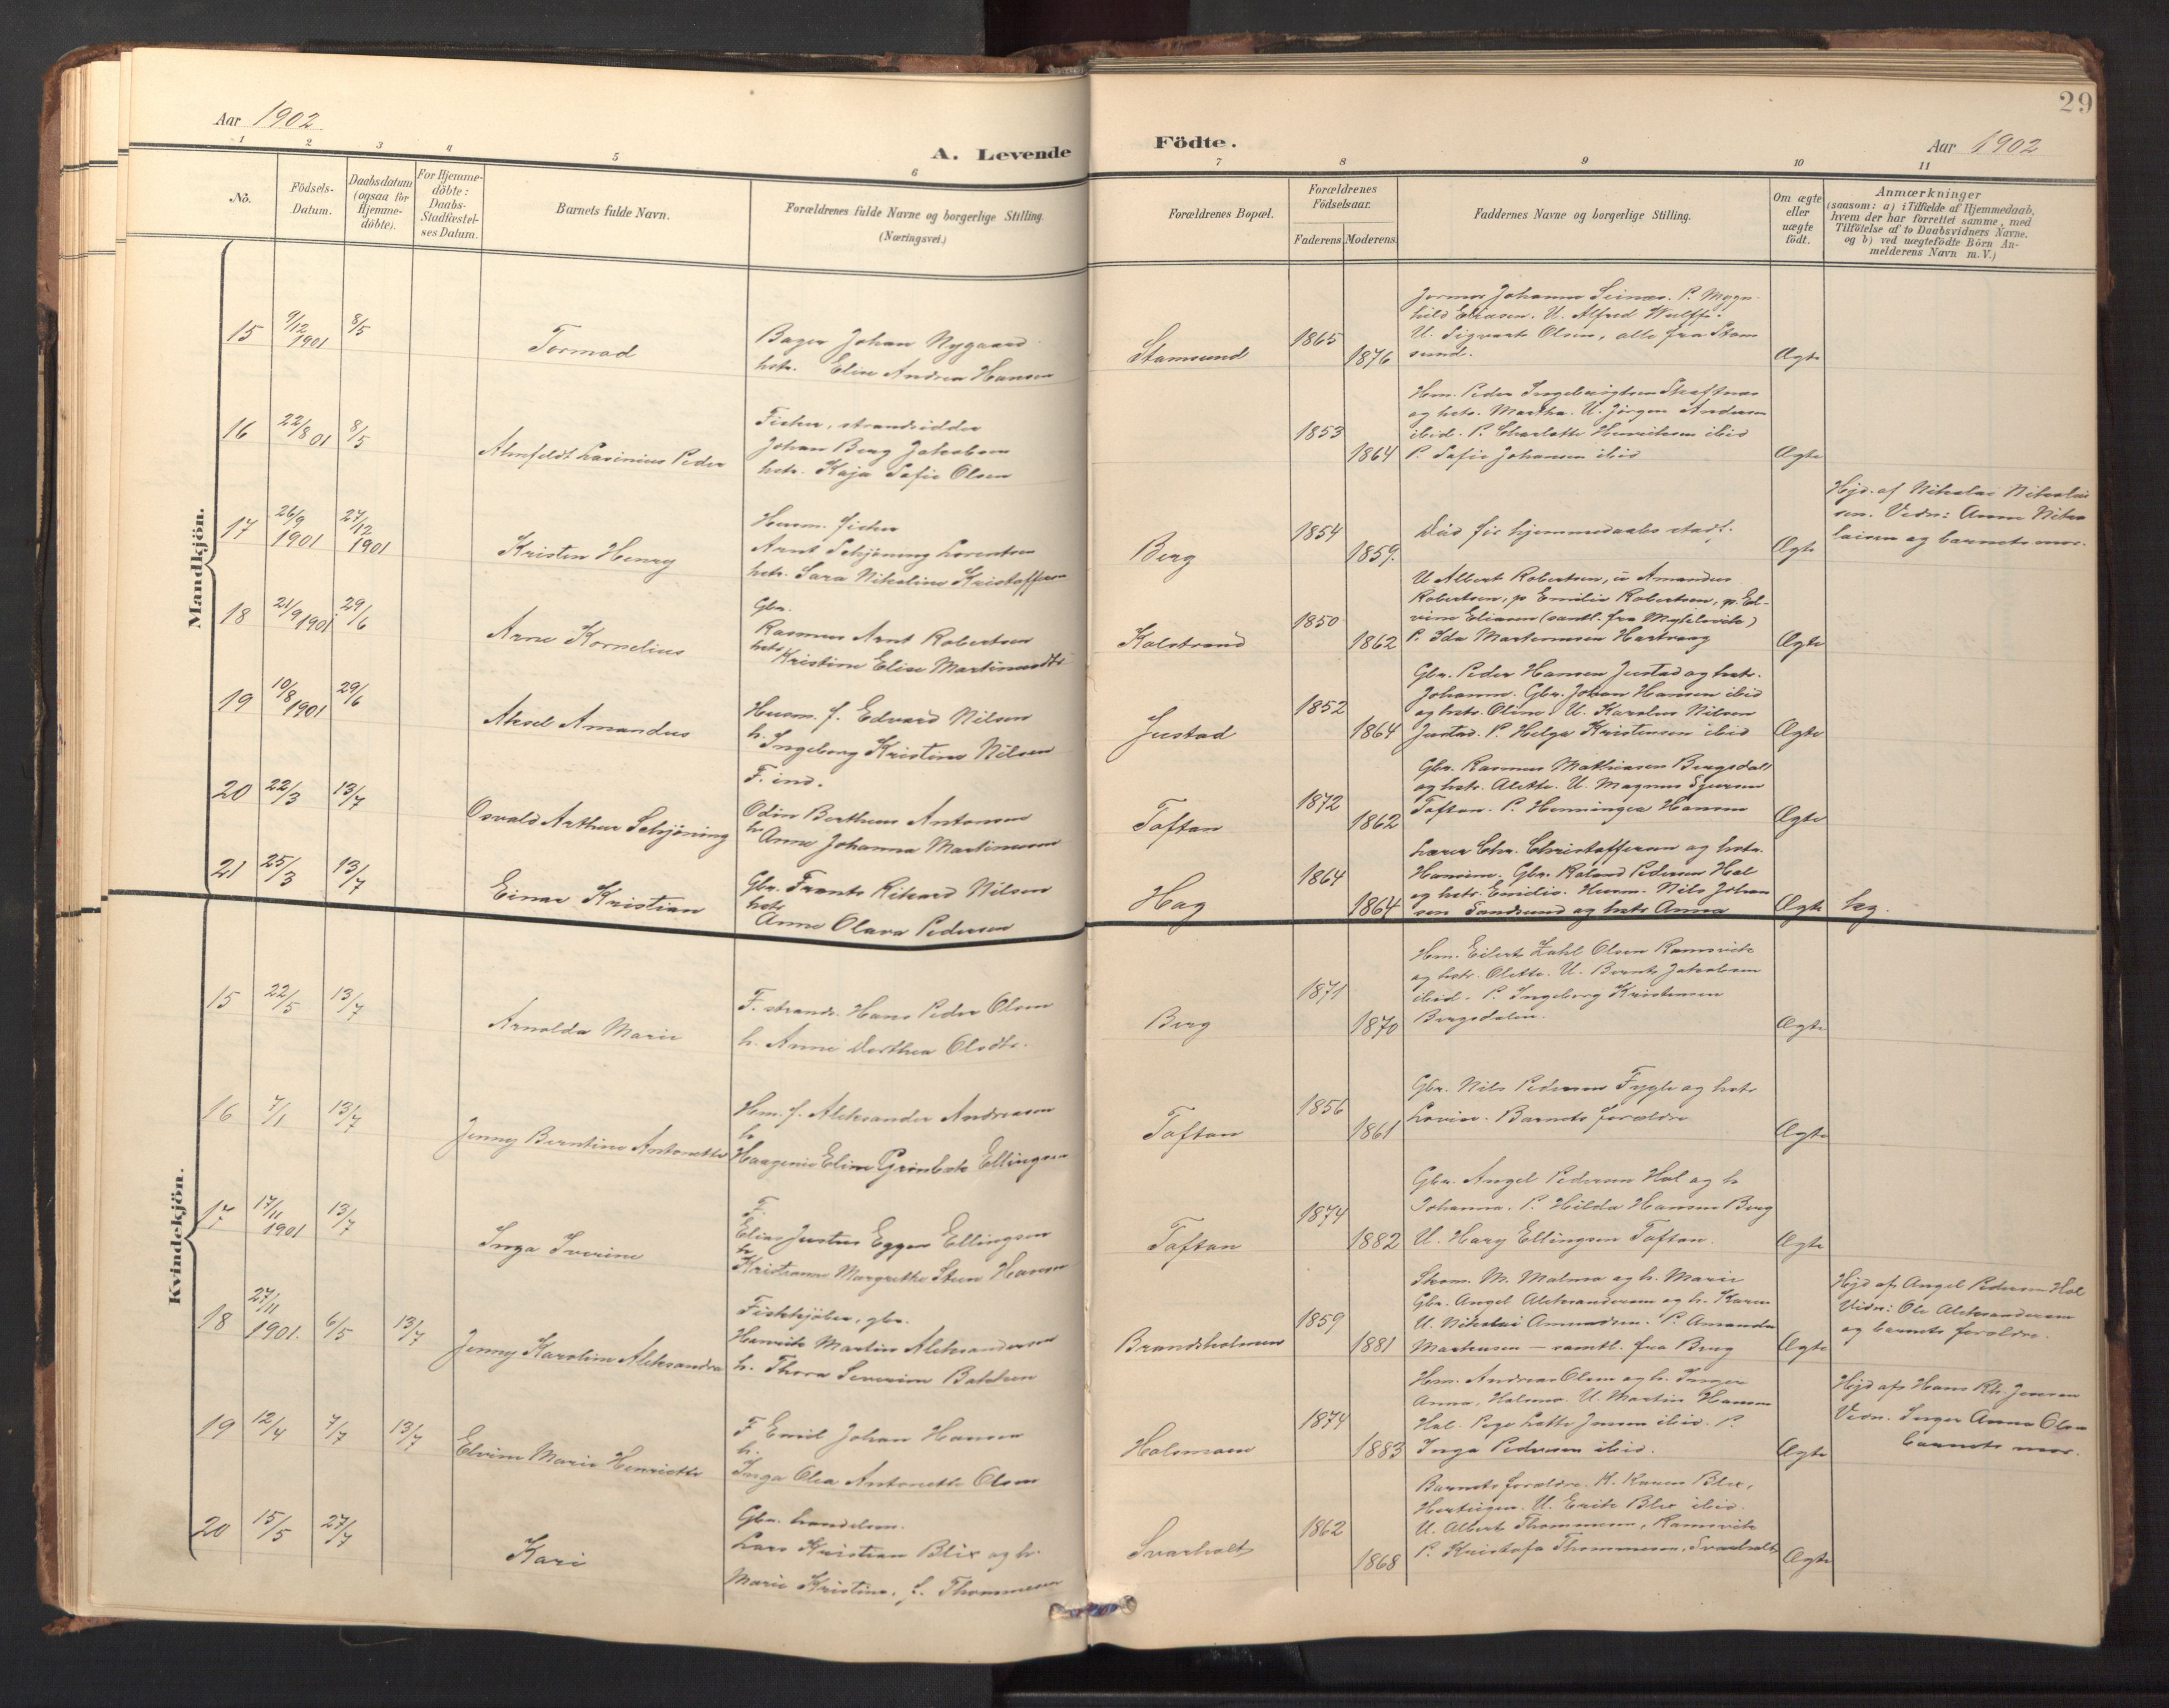 Aar 1902
29
Aar 1902
A. Levende
Födte.
1 2 3 4 5 6
7 8 9 10 11
No.
Födsels-
Datum.
Daabsdatum
(ogsaa for
Hjemme-
döbte).
For Hjemme-
döbte:
Daabs-
Stadfæstel-
ses Datum.
Barnets fulde Navn.
Forældrenes fulde Navne og borgerlige Stilling.
(Næringsvei.)
Forældrenes Bopæl.
Forældrenes
Födselsaar.
Faderens Moderens
Faddernes Navne og borgerlige Stilling.
Om ægte
eller
uægte
födt.
Anmærkninger
(saasom: a) i Tilfælde af Hjemmedaab,
hvem der har forrettet samme, med
Tilföielse af to Daabsvidners Navne,
og b) ved uægtefödte Börn An-
melderens Navn m. V.)
Mandkjön.
15 9/12 1901 8/5
Tormod
Bager Johan Nygaard
hstr. Elise Andrea Hansen
Stamsund
1865
1876
Jormor Johanna P.
U. Alfred Wulff.
U. Sigvart Olsen, alle fra Stam
sund.
Ægte
16 22/8 01 8/5
Peder
Fisker, strandsidder
Johan Berg Jakobsen
hstr. Kaja Sofie Olsen
1853
1864
Hm. Peder Ingebrigtsen
og hstr. Martha. U. Jörgen Andersen
ibid. P. Charlotte Henriksen ibid
P. Sofie Johansen ibid
Ægte
17 26/9 1901 27/12 1901
Kristen Henry
Husm. fisker
Arnt Schjöning Lorentsen
hstr. Sara Nikoline Kristoffersen
Berg
1854
1859.
Död för hjemmedaabs stadf.
Ægte
Hjd. af Nikolai Nikolai
sen. Vidn: Anne Niko
laisen og barnets mor.
18 21/9 1901 29/6
Arne Kornelius
Gbr.
Rasmus Arnt Robertsen
hstr. Kristine Elise Martinusdtr
Kalstrand
1850
1862
U Albert Robertsen, u Amandus
Robertsen, p Emilie Robertsen, p. El-
vine Eliasen (samtl. fra )
P. Ida Martinussen Hartvaag
Ægte
19 10/8 1901 29/6
Aksel Amandus
Husm. f. Edvard Nilsen
h. Ingeborg Kristine Nilsen
Justad
1852
1864
Gbr. Peder Hansen Justad og hstr.
Johanna. Gbr. Johan Hansen ibid
og hstr. Oline. U. Karolus Nilsen
Justad. P. Helga Kristensen ibid
Ægte
20 22/3 13/7
Osvald Arthur Schjöning
F. ind.
Odin Bertheus Antonsen
h. Anne Johanna Martinussen
Toftan
1872
1862
Gbr. Rasmus Mathiasen Bergsdal
og hstr. Alette. U. Magnus
Toftan. P. Henningea Hansen
Ægte
21 25/3 13/7
Einar Kristian
Gbr. Frants Rikard Nilsen
hstr.
Anne Olava Pedersen
Hag
1864
1864
Lærer Chr. Christoffersen og hstr.
Hansine. Gbr. Roland Pedersen Hol
og hstr. Emilie. Husm. Nils Johan
sen Sandsund og hstr Anna
Ægte
Kvindekjön.
15 22/5 13/7
Arnolda Marie
F. strands. Hans Peder Olsen
h. Anne Dorthea Olsdtr.
Berg
1871
1870
Hm. Eilert Zahl Olsen Ramsvik
og hstr. Olette. U. Bernt Jakobsen
ibid. P. Ingeborg Kristensen
Bergsdalen.
Ægte
16 7/1 13/7
Jenny Berntine Antonette
Hm. f. Aleksander Andreasen
h.
Haagenie Eline Grönbek Ellingsen
Toftan
1856
1861
Gbr. Nils Pedersen Fygle og hstr
Lovise. Barnets forældre
Ægte
17 17/11 1901 13/7
Inga Iverine
F.
Elias Justus Egger Ellingsen
h.
Kristianne Margrethe Steen Hansen
Toftan
1874
1882
Gbr. Angel Pedersen Hol og h
Johanna. P. Hilda Hansen Berg
U. Hary Ellingsen Toftan.
Ægte
18 27/11 1901. 6/5 13/7
Jenny Karoline Aleksandra
Fiskekjöber, gbr.
Henrik Martin Aleksandersen
h. Thora Severine Bakken
Brandsholmen
1859
1881
Skom. M. Malmo og h. Marie
Gbr. Angel Aleksandersen og h. Karen
U. Nikolai Amundsen. P. Amanda
Markusen – samtl. fra Berg
Ægte
Hjd af Angel Pedersen Hol
Vidn: Ole Aleksandersen
og barnets forældre.
19 12/4 7/7 13/7
Elvine Marie Henriette
F Emil Johan Hansen
h.
Inga Olea Antonette Olsen
Holsmoen
1874
1883
Hm. Andreas Olsen og h. Inger
Anna, Holsmo. U. Martin Hansen
Hol. Pige Lotte Jensen ibid. P.
Inga Pedersen ibid.
Ægte
Hjd af Hans Jensen
Vidn. Inger Anna Olsen
barnets mor.
20 15/5 27/7
Kari
Gbr. handelsm.
Lars Kristian Blix og h.
Marie Kristine, f. Thommesen
Svarholt
1862
1868
Barnets forældre. K. Karen Blix,
Hertugen. U. Erik Blix ibid.
U. Albert Thommesen, Ramsvik
P. Kristofa Thommesen, Svarholt
Ægte